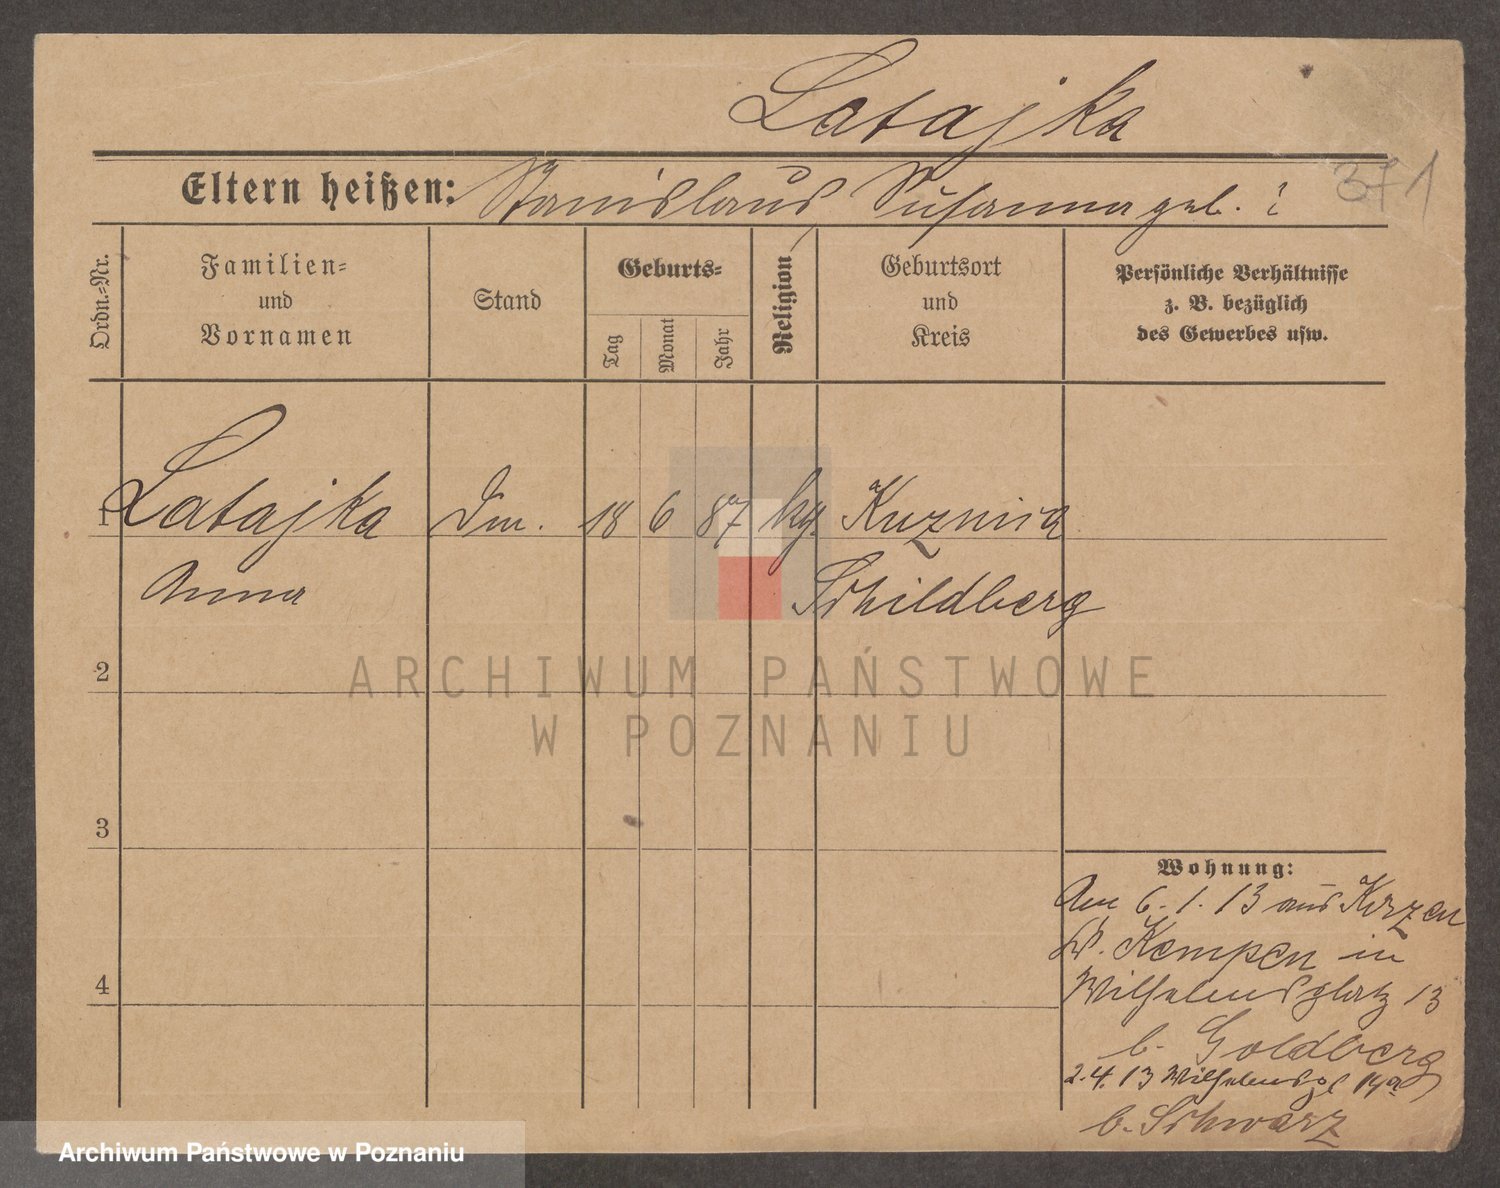 Latajka
371
Eltern heißen: Stanislaus Susanna geb. ?
Ordn.-Nr.
Familien-
und
Vornamen
Stand
Geburts-
Tag
Monat
Jahr
Religion
Geburtsort
und
Kreis
Persönliche Verhältnisse
z. B. bezüglich
des Gewerbes usw.
1 Latajka
Anna
18 6 87 Kuznica
Schildberg
2
3
4
Wohnung:
Am 6. 1. 13 aus
Kempen in
Wilhelmsplatz 13
b. Goldberg
2. 4. 13 Wilhelmspl
b. Schwarz
ARCHIWUM PAŃSTWOWE
W POZNANIU
Archiwum Państwowe w Poznaniu